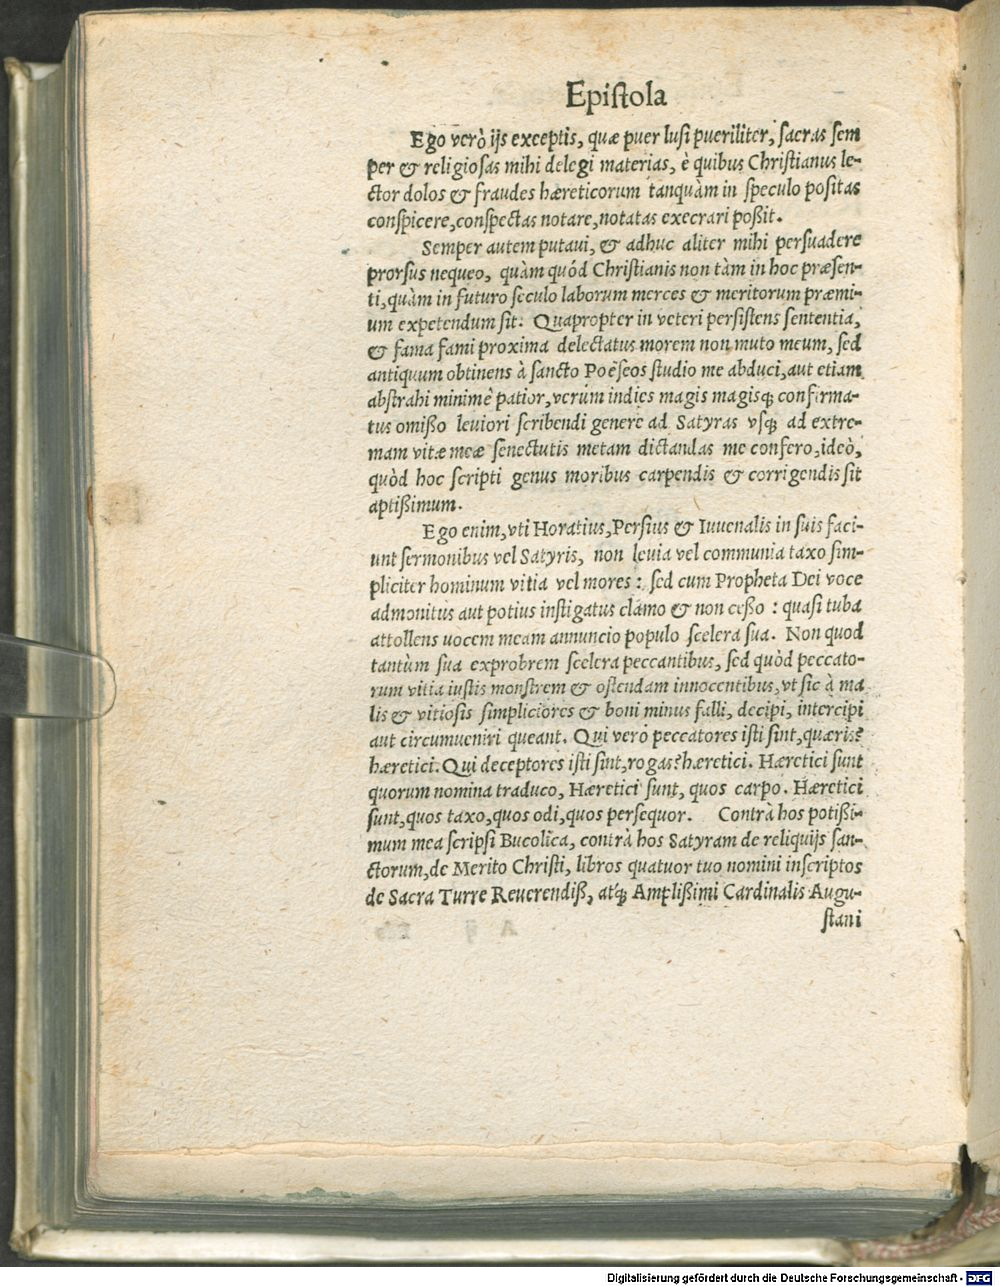 Epiſtola
Ego verò ijs exceptis, quæ puer luſi pueriliter, ſacras ſem
per & religioſas mihi delegi materias, è quibus Chriſtianus le-
ctor dolos & fraudes hæreticorum tanquàm in ſpeculo poſitas
conſpicere, conſpectas notare, notatas execrari poßit.
Semper autem putaui, & adhuc aliter mihi perſuadere
prorſus nequeo, quàm quód Chriſtianis non tàm in hoc præſen-
ti, quàm in futuro ſeculo laborum merces & meritorum præmi-
um expetendum ſit. Quapropter in veteri perſiſtens ſententia,
& fama fami proxima delectatus morem non muto meum, ſed
antiquum obtinens à ſancto Poëſeos ſtudio me abduci, aut etiam
abſtrahi minimè patior, verùm indies magis magisq́; confirma-
tus omißo leuiori ſcribendi genere ad Satyras vſq́; ad extre-
mam vitæ meæ ſenectutis metam dictandas me confero, ideò,
quòd hoc ſcripti genus moribus carpendis & corrigendis ſit
aptißimum.
Ego enim, vti Horatius, Perſius & Iuuenalis in ſuis faci-
unt ſermonibus vel Satyris, non leuia vel communia taxo ſim-
pliciter hominum vitia vel mores: ſed cum Propheta Dei voce
admonitus aut potius inſtigatus clamo & non ceßo: quaſi tuba
attollens uocem meam annuncio populo ſcelera ſua. Non quod
tantùm ſua exprobrem ſcelera peccantibus, ſed quòd peccato-
rum vitia iuſtis monſtrem & oſtendam innocentibus, vt ſic à ma
lis & vitioſis ſimpliciores & boni minus falli, decipi, intercipi
aut circumueniri queant. Qui verò peccatores iſti ſint, quæris?
hæretici. Qui deceptores iſti ſint, rogas? hæretici. Hæretici ſunt
quorum nomina traduco, Hæretici ſunt, quos carpo. Hæretici
ſunt, quos taxo, quos odi, quos perſequor. Contrà hos potißi-
mum mea ſcripſi Bucolica, contrà hos Satyram de reliquijs ſan-
ctorum, de Merito Chriſti, libros quatuor tuo nomini inſcriptos
de Sacra Turre Reuerendiß, atq́; Amplißimi Cardinalis Augu-
ſtani
Digitalisierung gefördert durch die Deutsche Forschungsgemeinschaft - DFG